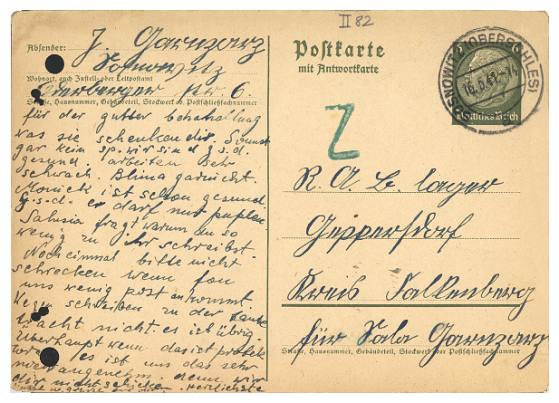 II 82
Absender: J. Garnzarz
Sosnowitz
Wohnort, auch Zustell- oder Leitpostamt
Oderberger Nr. 6.
Straße, Hausnummer, Gebäudeteil, Stockwerk od. Postschließfachnummer
für der gutter behandlung
was sie schenken dir. Sonst
gar kein sp. wir sind g.s.d.
gesund. arbeiten sehr
schwach. Blima garnicht.
Moniek ist schon gesund
g.s.d. er darf nur
Salusia fragt warum du so
wenig zu ihr schreibst.
Nocheinmal bitte nicht
schrecken wenn fon
uns wenig post ankommt
Wegen schreiben zu der
macht nicht es ist übrig
Überhaupt wenn das ist
es ist uns das sehr
unangenehm. denn wir
dir nicht schicken. herzlichste
Postkarte
mit Antwortkarte
SOSNOWITZ (OBERSCHLES)
16.6.41-14
Deutsches Reich
Z
R. A. B. lager
Geppersdorf
Kreis Falkenberg
für Sala Garnzarz
Straße, Hausnummer, Gebäudeteil, Stockwerk oder Postschließfachnummer